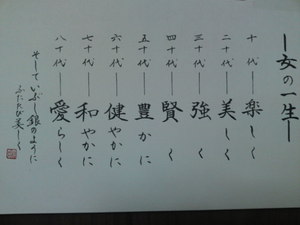 ―女の一生―
十代――楽しく
二十代――美しく
三十代――強く
四十代――賢く
五十代――豊かに
六十代――健やかに
七十代――和やかに
八十代――愛らしく
そして いぶし銀のように
ふたたび美しく